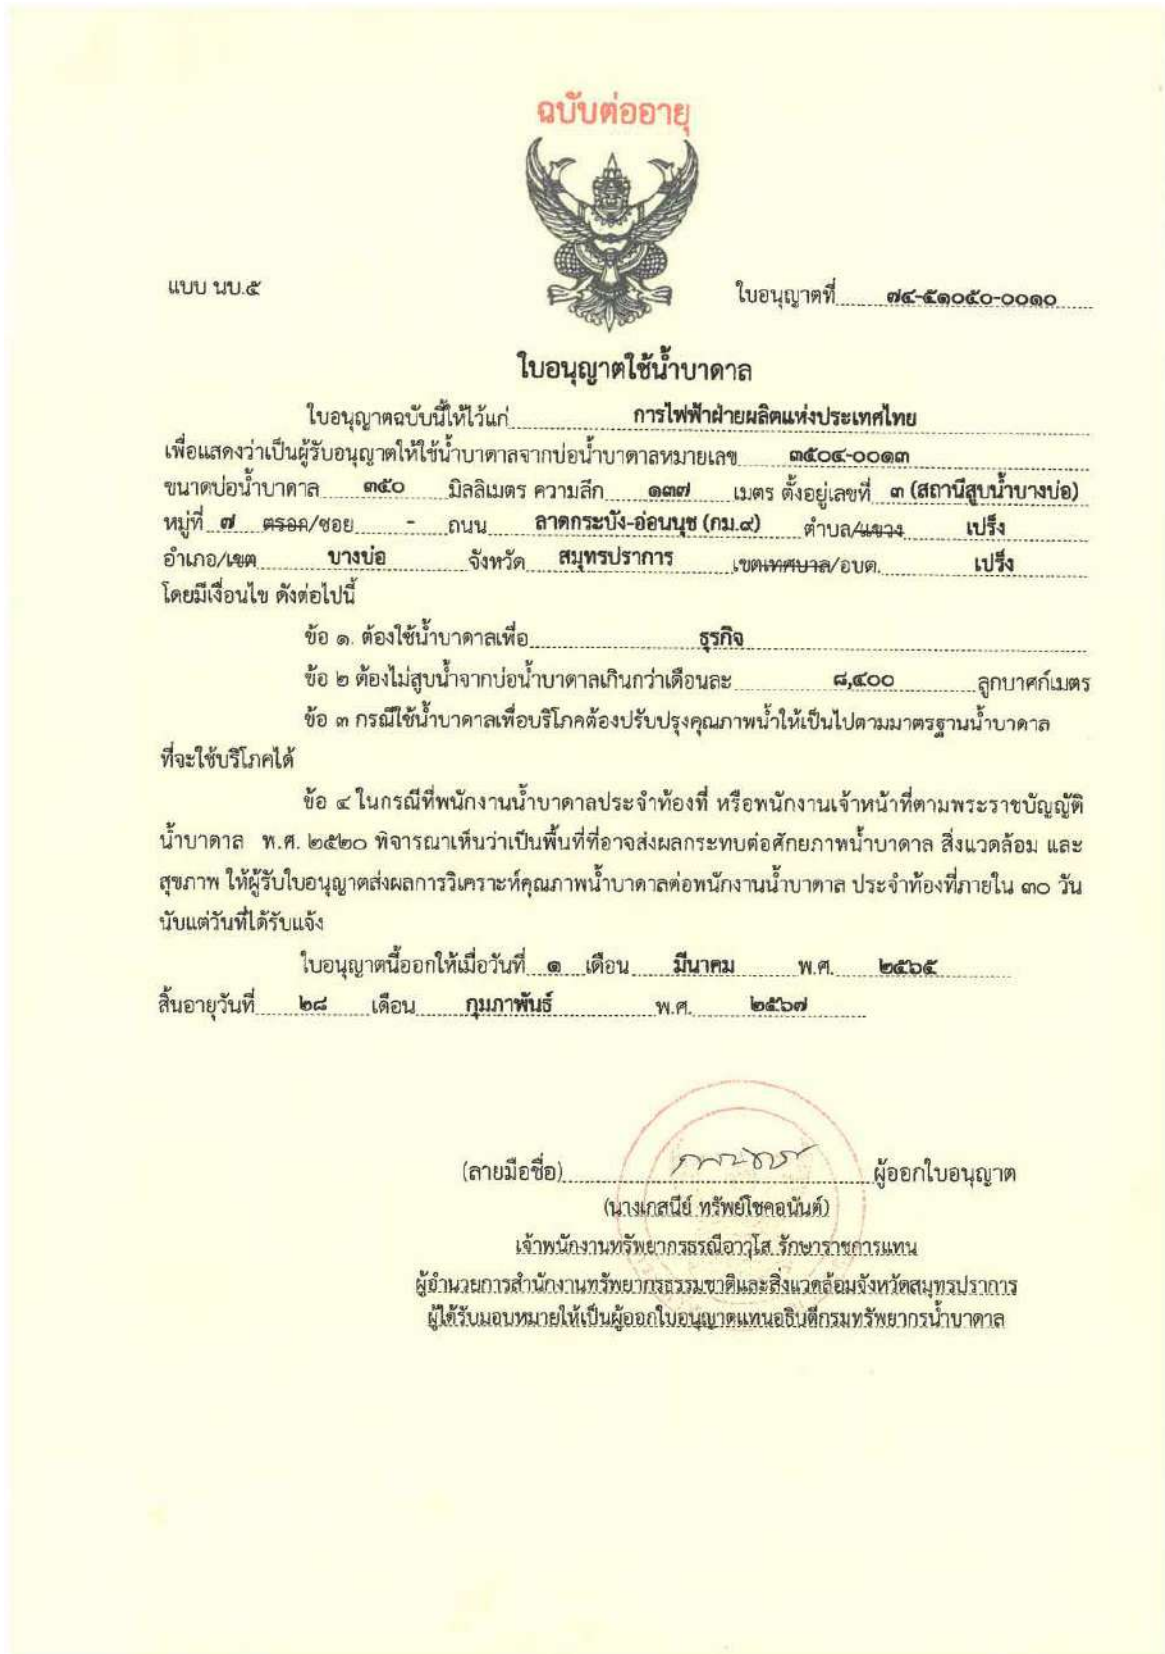 ฉบับต่ออายุ
แบบ นบ.๕
ใบอนุญาตที่ ๗๔-๕๑๐๕๐-๐๐๑๐
ใบอนุญาตใช้น้ำบาดาล
ใบอนุญาตฉบับนี้ให้ไว้แก่ การไฟฟ้าฝ่ายผลิตแห่งประเทศไทย
เพื่อแสดงว่าเป็นผู้รับอนุญาตให้ใช้น้ำบาดาลจากบ่อน้ำบาดาลหมายเลข ๓๕๐๔-๐๐๑๓
ขนาดบ่อน้ำบาดาล ๓๕๐ มิลลิเมตร ความลึก ๑๓๗ เมตร ตั้งอยู่เลขที่ ๓ (สถานีสูบน้ำบางบ่อ)
หมู่ที่ ๗ ตรอก/ซอย - ถนน ลาดกระบัง-อ่อนนุช (กม.๙) ตำบล/แขวง เปร็ง
อำเภอ/เขต บางบ่อ จังหวัด สมุทรปราการ เขตเทศบาล/อบต. เปร็ง
โดยมีเงื่อนไข ดังต่อไปนี้
ข้อ ๑. ต้องใช้น้ำบาดาลเพื่อ ธุรกิจ
ข้อ ๒ ต้องไม่สูบน้ำจากบ่อน้ำบาดาลเกินกว่าเดือนละ ๘,๔๐๐ ลูกบาศก์เมตร
ข้อ ๓ กรณีใช้น้ำบาดาลเพื่อบริโภคต้องปรับปรุงคุณภาพน้ำให้เป็นไปตามมาตรฐานน้ำบาดาล
ที่จะใช้บริโภคได้
ข้อ ๔ ในกรณีที่พนักงานน้ำบาดาลประจำท้องที่ หรือพนักงานเจ้าหน้าที่ตามพระราชบัญญัติ
น้ำบาดาล พ.ศ. ๒๕๒๐ พิจารณาเห็นว่าเป็นพื้นที่ที่อาจส่งผลกระทบต่อศักยภาพน้ำบาดาล สิ่งแวดล้อม และ
สุขภาพ ให้ผู้รับใบอนุญาตส่งผลการวิเคราะห์คุณภาพน้ำบาดาลต่อพนักงานน้ำบาดาล ประจำท้องที่ภายใน ๓๐ วัน
นับแต่วันที่ได้รับแจ้ง
ใบอนุญาตนี้ออกให้เมื่อวันที่ ๑ เดือน มีนาคม พ.ศ. ๒๕๖๕
สิ้นอายุวันที่ ๒๘ เดือน กุมภาพันธ์ พ.ศ. ๒๕๖๗
(ลายมือชื่อ) ผู้ออกใบอนุญาต
(นางเกสนีย์ ทรัพย์โชคอนันต์)
เจ้าพนักงานทรัพยากรธรณีอาวุโส รักษาราชการแทน
ผู้อำนวยการสำนักงานทรัพยากรธรรมชาติและสิ่งแวดล้อมจังหวัดสมุทรปราการ
ผู้ได้รับมอบหมายให้เป็นผู้ออกใบอนุญาตแทนอธิบดีกรมทรัพยากรน้ำบาดาล